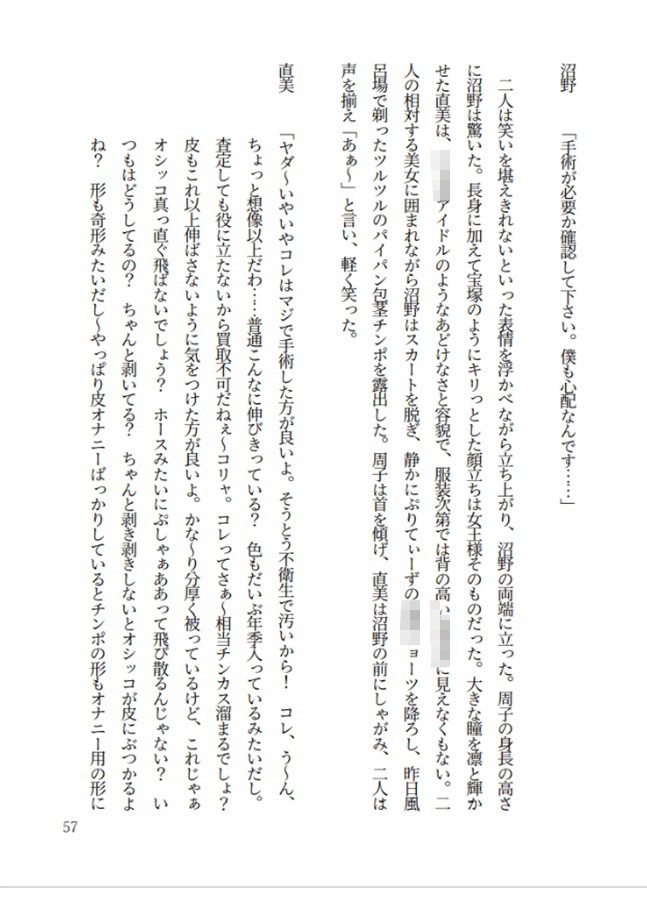 沼野　「手術が必要か確認して下さい。僕も心配なんです……」
二人は笑いを堪えきれないといった表情を浮かべながら立ち上がり、沼野の両端に立った。周子の身長の高さ
に沼野は驚いた。長身に加えて宝塚のようにキリっとした顔立ちは女王様そのものだった。大きな瞳を凛と輝か
せた直美は、アイドルのようなあどけなさと容貌で、服装次第では背の高いに見えなくもない。二
人の相対する美女に囲まれながら沼野はスカートを脱ぎ、静かにぷりてぃーずのョーツを降ろし、昨日風
呂場で剃ったツルツルのパイパン包茎チンポを露出した。周子は首を傾げ、直美は沼野の前にしゃがみ、二人は
声を揃え「あぁ～」と言い、軽く笑った。
直美　「ヤダ～いやいやコレはマジで手術した方が良いよ。そうとう不衛生で汚いから！　コレ、う～ん、
ちょっと想像以上だわ……普通こんなに伸びきっている？　色もだいぶ年季入っているみたいだし。
査定しても役に立たないから買取不可だねぇ～コリャ。コレってさぁ～相当チンカス溜まるでしょ？
皮もこれ以上伸ばさないように気をつけた方が良いよ。かな～り分厚く被っているけど、これじゃぁ
オシッコ真っ直ぐ飛ばないでしょう？　ホースみたいにぷしゃぁああって飛び散るんじゃない？　い
つもはどうしてるの？　ちゃんと剥いてる？　ちゃんと剥き剥きしないとオシッコが皮にぶつかるよ
ね？　形も奇形みたいだし～やっぱり皮オナニーばっかりしているとチンポの形もオナニー用の形に
57